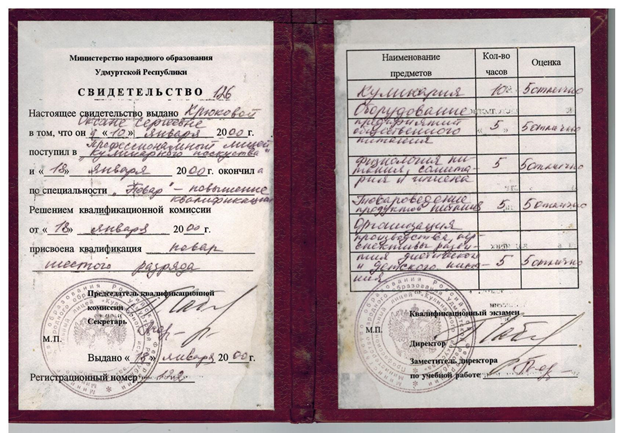 Министерство народного образования
Удмуртской Республики
СВИДЕТЕЛЬСТВО 126
Настоящее свидетельство выдано Крюковой
Оксане Сергеевне
в том, что он а «10» января 2000 г.
поступил в Профессиональной лицей
"Кулинарного искусства"
и «18» января 2000 г. окончил а
по специальности "Повар" – повышение
квалификации
Решением квалификационной комиссии
от «18» января 2000 г.
присвоена квалификация повар
шестого разряда
Председатель квалификационной
комиссии
Секретарь
М.П.
Выдано «18» января 2000 г.
Регистрационный номер 128
Наименование предметов Кол-во часов Оценка
Кулинария 10 5 отлично
Оборудование
предприятий
общественного
питания 5 5 отлично
Физиология пи-
тания, санита-
рия и гигиена 5 5 отлично
Товароведение
продуктов питания 5 5 отлично
Организация
производства
и детского пита-
ния 5 5 отлично
Квалификационный экзамен
М.П.
Директор
Заместитель директора
по учебной работе